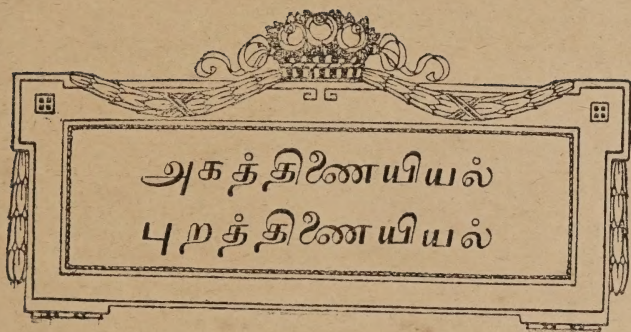 அகத்திணையியல்
புறத்திணையியல்